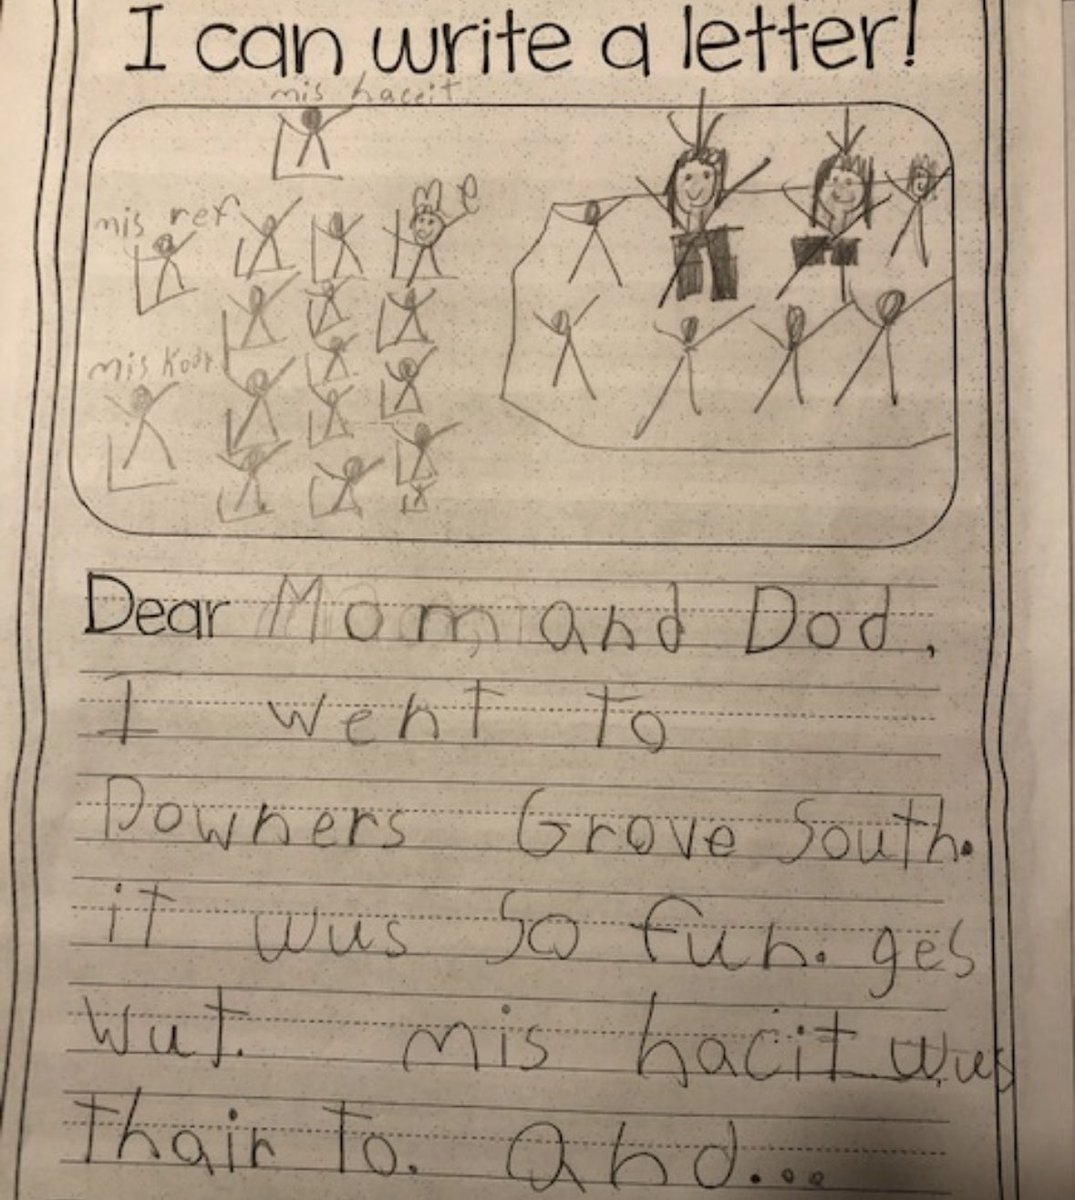 I can write a letter!
mis haceit
me
mis ref
mis Kodr
Dear Mom and Dod,
I went to
Downers Grove South.
it wus so fun. ges
wut. mis hacit wus
thair to. and...